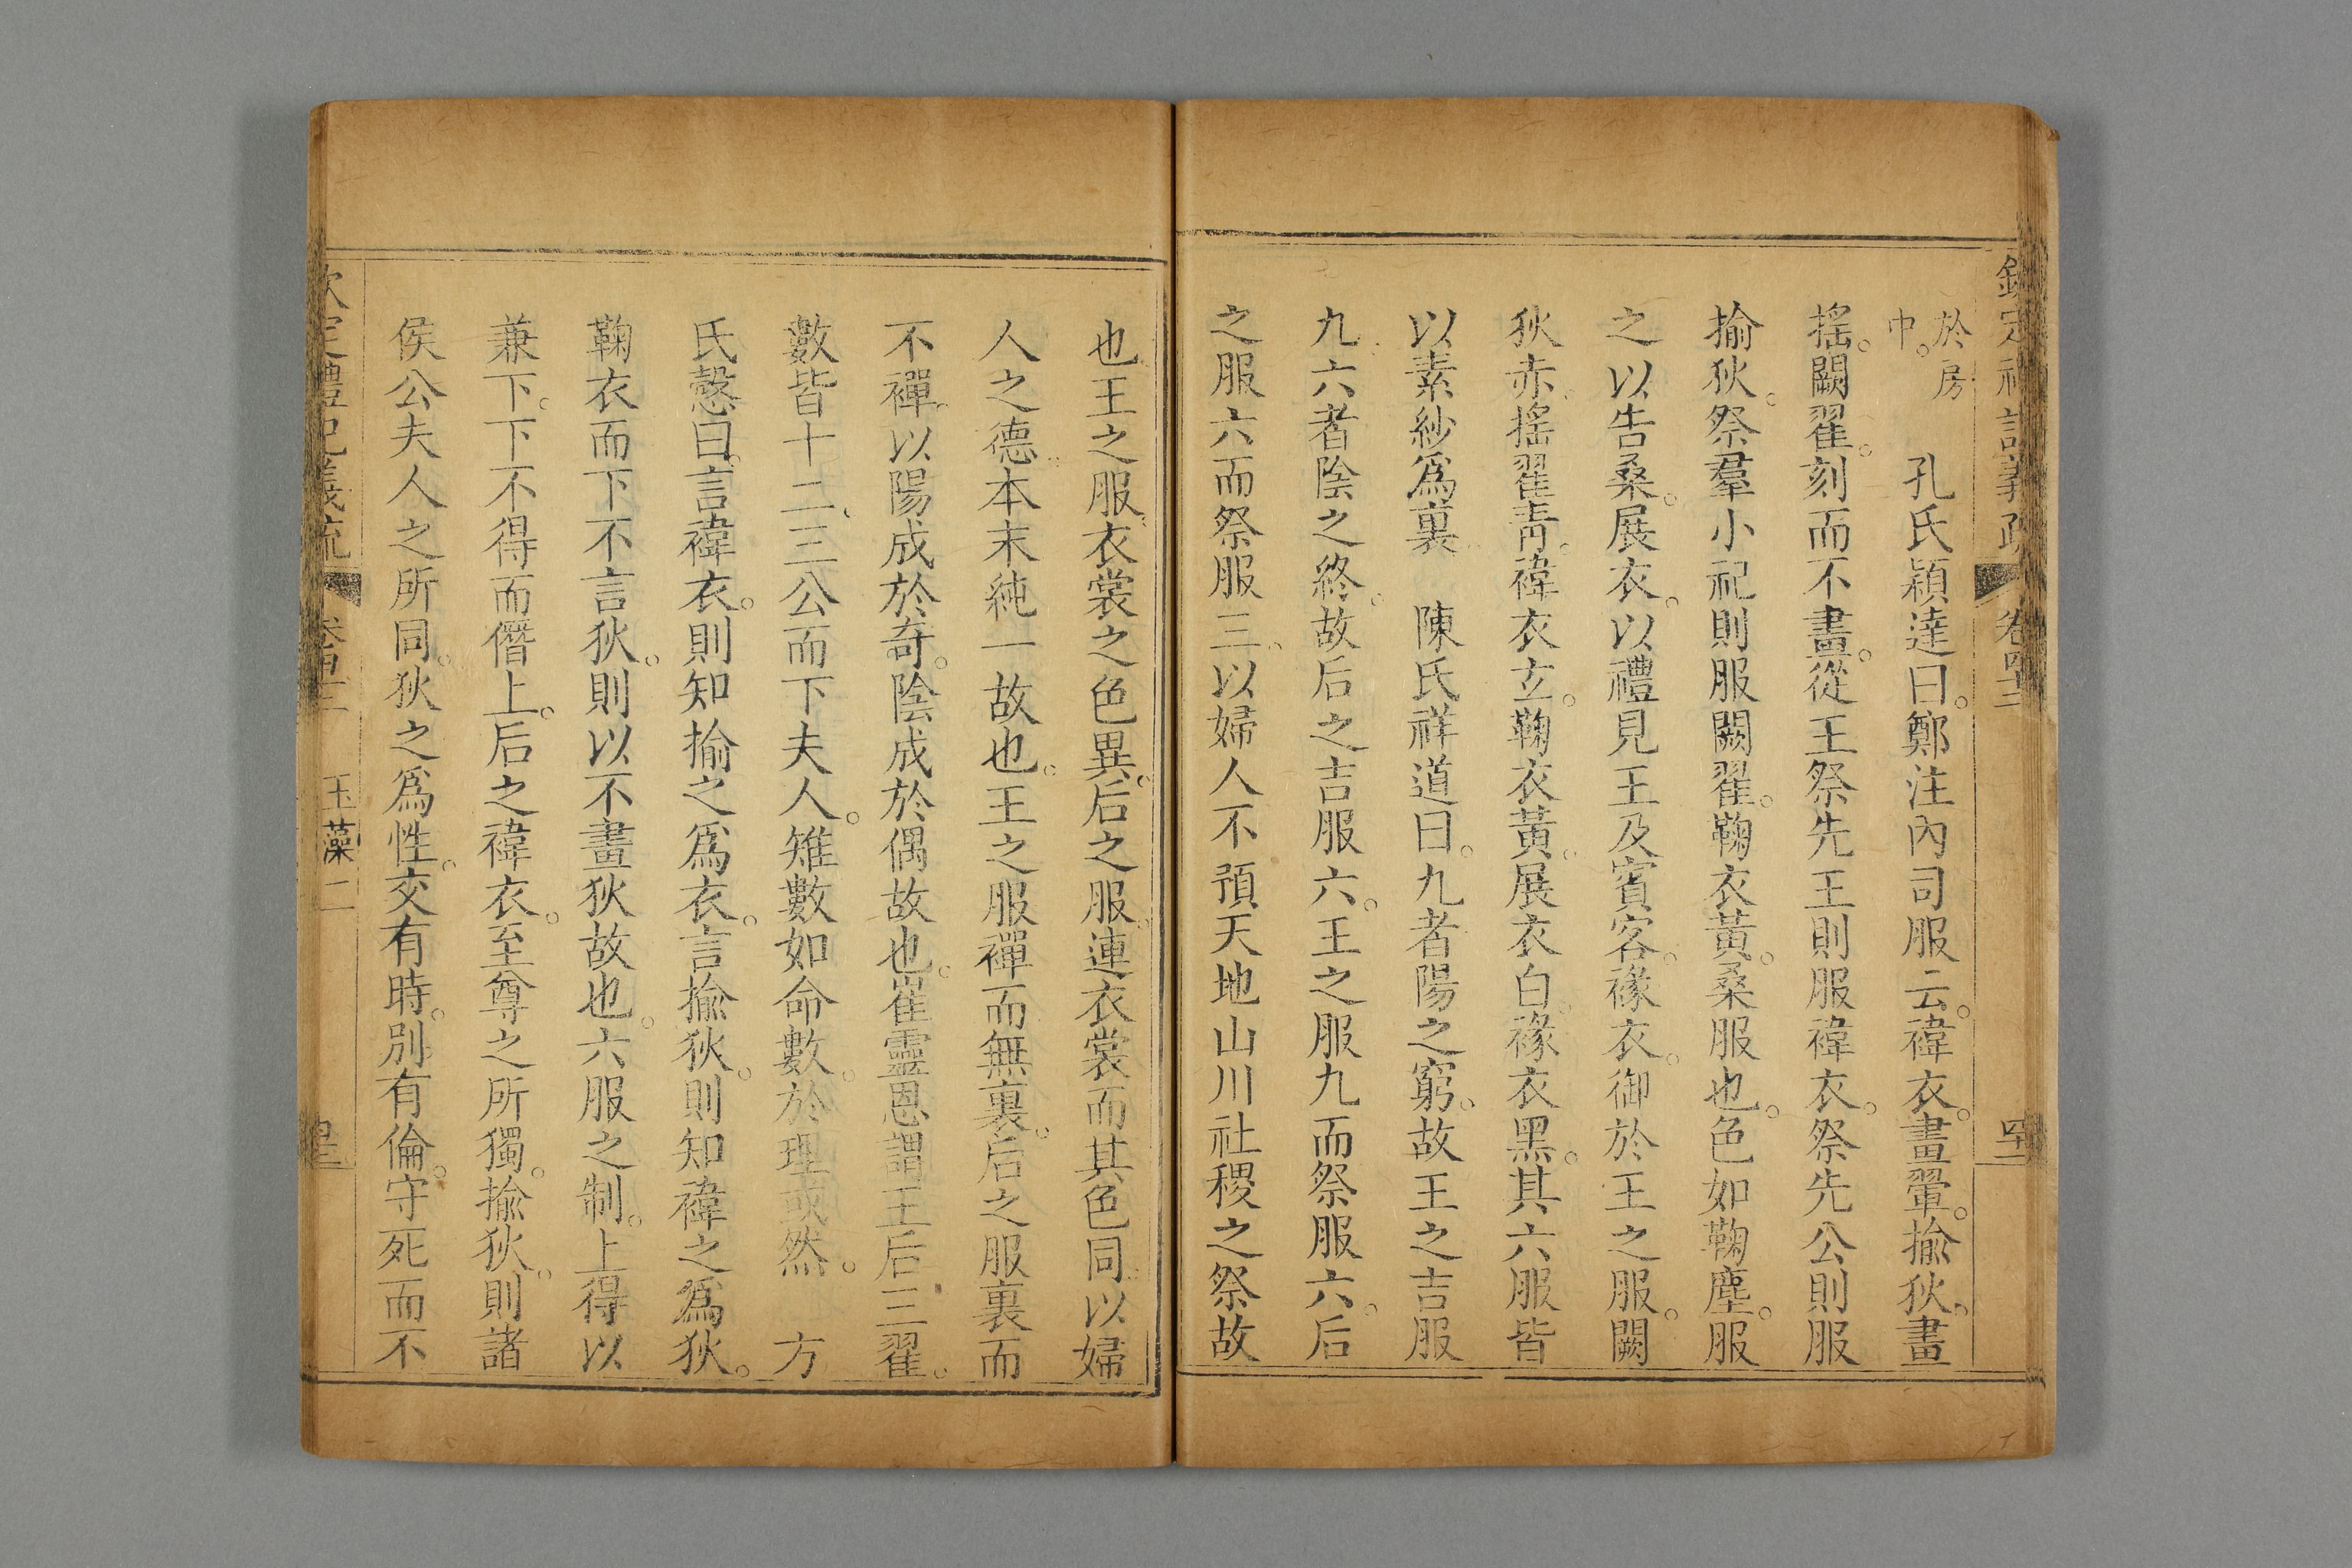 欽定禮記義疏 卷四十二 四十二
於房
中。
孔氏穎達曰。鄭注內司服云。褘衣。畫翬。揄狄。畫
搖。闕翟。刻而不畫。從王祭先王則服褘衣。祭先公則服
揄狄。祭羣小祀則服闕翟。鞠衣黃。桑服也。色如鞠塵。服
之以告桑。展衣。以禮見王及賓客。褖衣。御於王之服。闕
狄赤。搖翟青。褘衣玄。鞠衣黃。展衣白。褖衣黑。其六服皆
以素紗爲裏 陳氏祥道曰。九者陽之窮。故王之吉服
九。六者陰之終。故后之吉服六。王之服九而祭服六。后
之服六而祭服三。以婦人不預天地山川社稷之祭故
也。王之服。衣裳之色異。后之服。連衣裳而其色同。以婦
人之德。本末純一故也。王之服襌而無裏。后之服裏而
不襌。以陽成於奇。陰成於偶故也。崔靈恩謂王后三翟。
數皆十二。三公而下夫人。雉數如命數。於理或然。 方
氏慤曰。言褘衣。則知揄之爲衣。言揄狄。則知褘之爲狄。
鞠衣而下不言狄。則以不畫狄故也。六服之制。上得以
兼下。下不得而僭上。后之褘衣。至尊之所獨。揄狄。則諸
侯公夫人之所同。狄之爲性。交有時。別有倫。守死而不
欽定禮記義疏 卷四十二 玉藻二